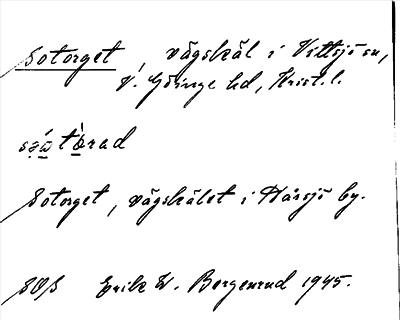 Sotorget, vägskäl i Vittsjö sn,
V. Göinge hd, Krist. l.
Sotorget, vägskälet i Hårsjö by.
Erik W. Borgenrud 1945.